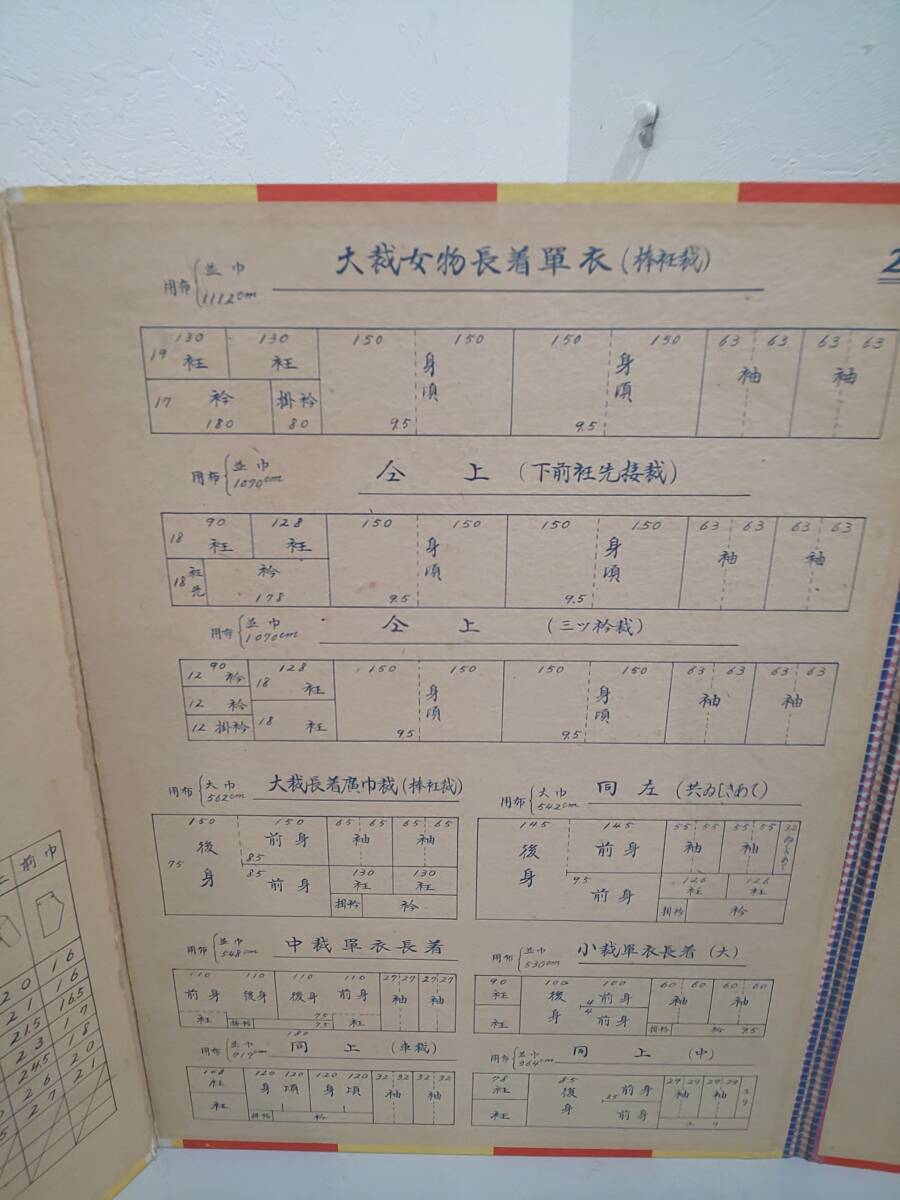 大裁女物長着單衣(棒衽裁)
用布 並巾 1112cm
2
130 130 150 150 150 150 63 63 63 63
19 衽 衽 身頃 身頃 袖 袖
17 衿 掛衿
180 80 9.5 9.5
用布 並巾 1070cm
仝上 (下前衽先接裁)
90 128 150 150 150 150 63 63 63 63
18 衽 衽 身頃 身頃 袖 袖
18 衽先 衿
178 9.5 9.5
用布 並巾 1070cm
仝上 (三ツ衿裁)
90 128 150 150 150 150 63 63 63 63
12 衿 18 衽 身頃 身頃 袖 袖
12 衿
12 掛衿 18 衽 9.5 9.5
用布 大巾 562cm
大裁長着廣巾裁(棒衽裁)
150 150 65 65 65 65
後身 前身 袖 袖
75 8.5
8.5 130 130
前身 衽 衽
掛衿 衿
用布 大巾 542cm
同左 (共ゐしきあて)
145 145 55 55 55 55 32
後身 前身 袖 袖 ゐしきあて
9.5 126 126
前身 衽 衽
掛衿 衿
用布 並巾 548cm
中裁單衣長着
110 110 110 110 27 27 27 27
前身 後身 後身 前身 袖 袖
衽 掛衿 7.5 7.5 衽
180
用布 並巾 530cm
小裁單衣長着 (大)
90 100 100 60 60 60 60
衽 後身 前身 袖 袖
4 4
衽 前身 掛衿 衿 9.5
用布 並巾 717cm
同上
108 120 120 120 120 32 32 32 32
衽 身頃 身頃 袖 袖
衽 掛衿 衿
用布 並巾
同上 (中)
78 85 29 29 29 29
衽 後身 前身 袖 袖
衽 前身
前巾
16
16
16.5
17
18
20
21
20
21
21.5
23
24.5
26
27